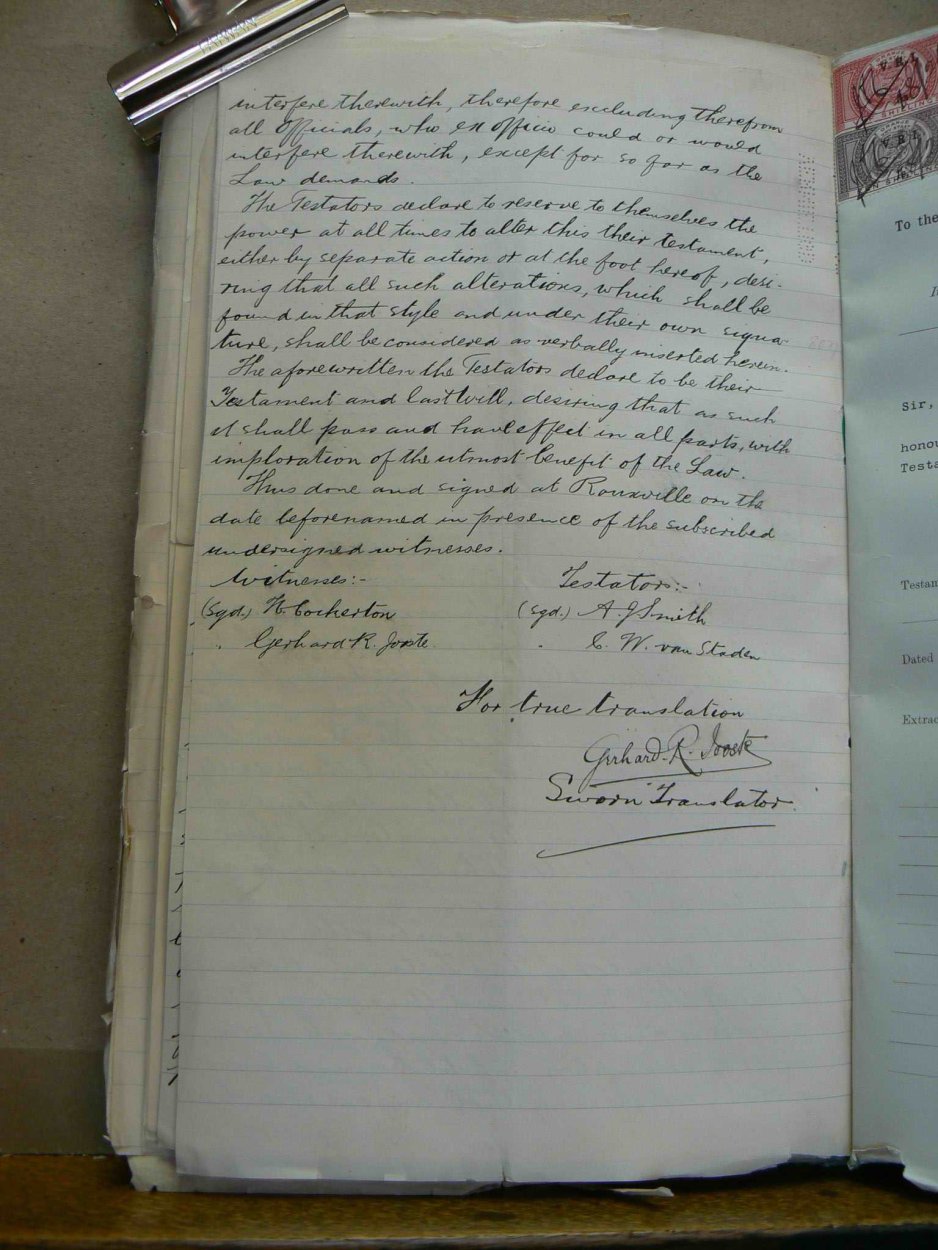 interfere therewith, therefore excluding therefrom
all Officials, who ex officio could or would
interfere therewith, except for so far as the
Law demands.
The Testators declare to reserve to themselves the
power at all times to alter this their testament,
either by separate action or at the foot hereof, desi-
ring that all such alterations, which shall be
found in that style and under their own signa-
ture, shall be considered as verbally inserted herein.
The aforewritten the Testators declare to be their
Testament and last Will, desiring that as such
it shall pass and have effect in all parts, with
imploration of the utmost benefit of the Law.
Thus done and signed at Rouxville on the
date beforenamed in presence of the subscribed
undersigned witnesses.
Witnesses:- Testators:-
(Sgd.) H. Cockerton (sgd.) A J Smith
" Gerhard R. Jooste " C. W. van Staden
For true translation
Gerhard. R. Jooste
Sworn Translator.
V R I
SHILLINGS
V R I
To the
Sir,
honou
Testa
Testam
Dated
Extrac